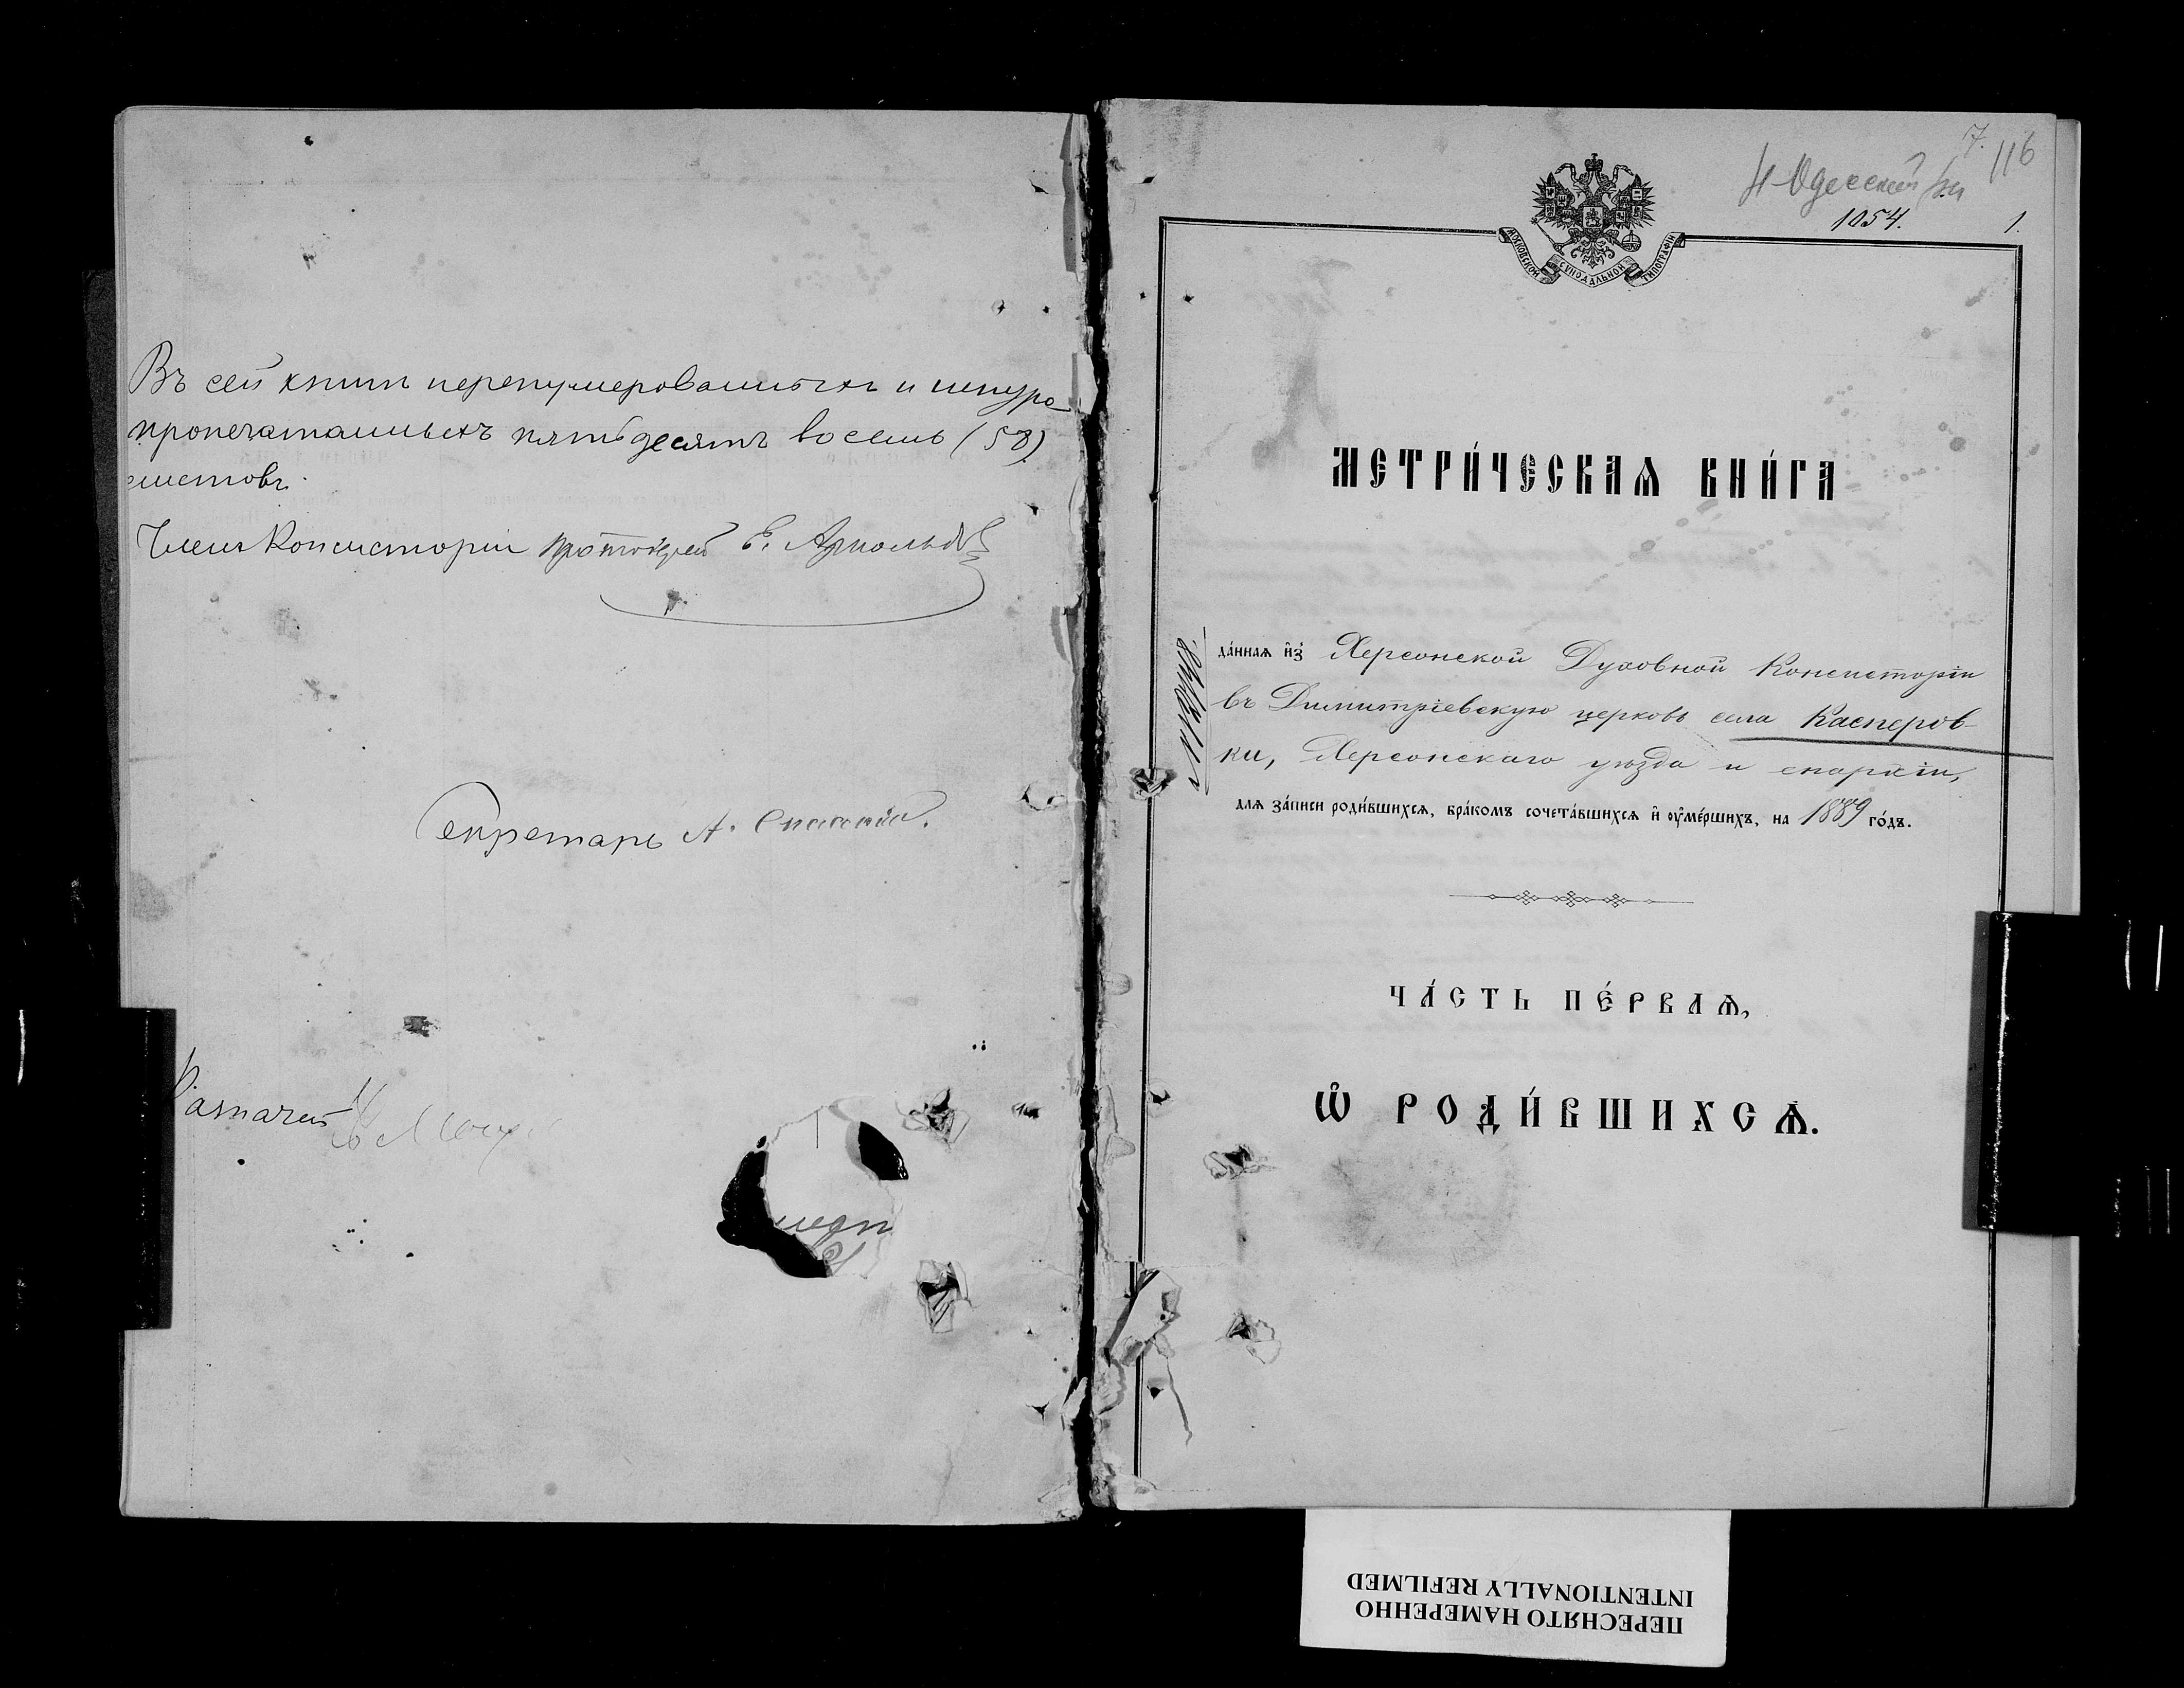 Въ сей книгѣ перенумерованныхъ и шнуро-
пропечатанныхъ пятьдесятъ восемь (58)
листовъ.
Членъ Консисторіи Протоіерей Е. Арнольдовъ
Секретарь А. Спасскій.
Казначей
7. 116
Н-Одесский р-н
1054. 1.
МОСКОВСКОЙ СѴНОДАЛЬНОЙ ТИПОГРАФІИ
МЕТРИ́ЧЕСКАѦ КНИ́ГА
да́ннаѧ и҆з̾ Херсонской Духовной Консисторіи
въ Димитріевскую церковь села Касперов-
ки, Херсонскаго уѣзда и епархіи,
длѧ за́писи роди́вшихсѧ, бра́комъ сочета́вшихсѧ и҆ ᲂу҆ме́ршихъ, на 1889 го́дъ.
ЧА́СТЬ ПЕ́РВАѦ,
Ѡ҆ РОДИ́ВШИХСѦ.
ПЕРЕСНЯТО НАМЕРЕННО
INTENTIONALLY REFILMED